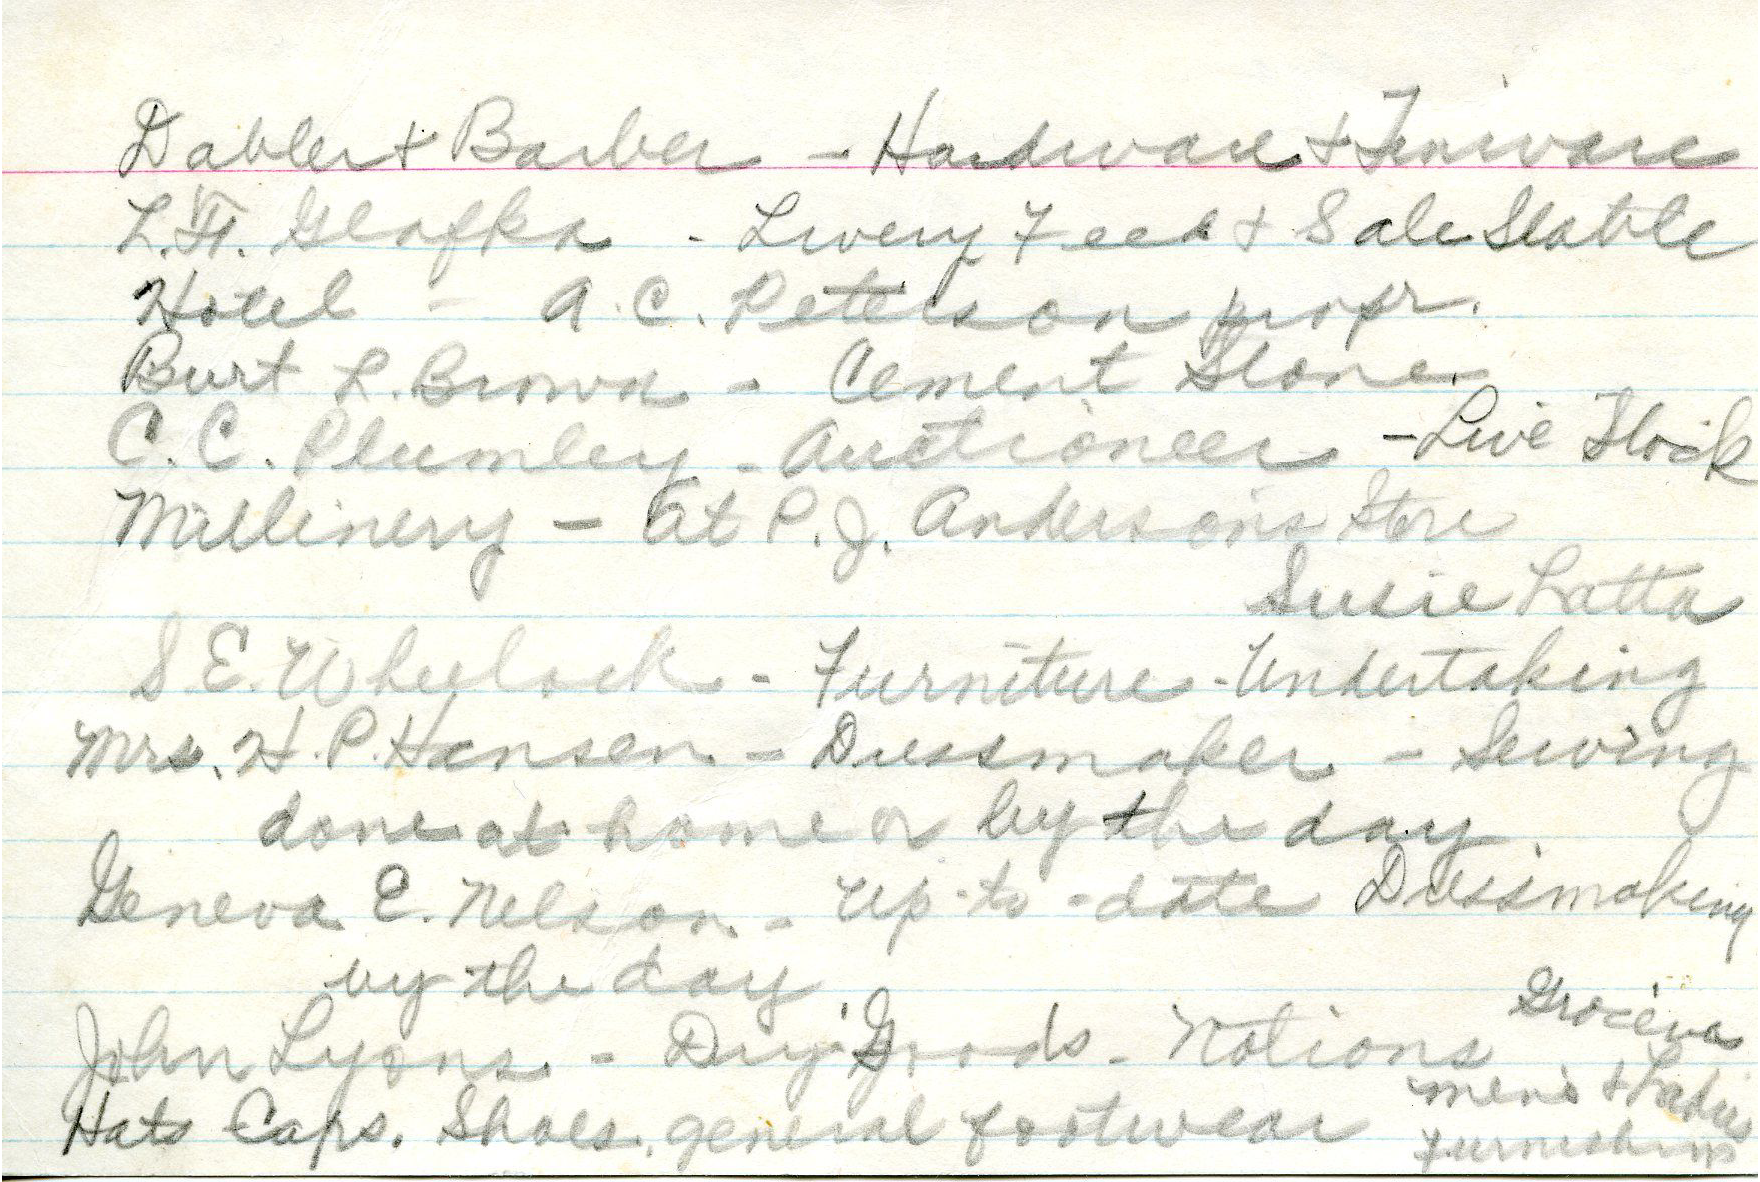 Dabler & Barber - Hardware & Tinware
L. H. Glafka - Livery Feed & Sale Stable
Hotel - A. C. Peterson propr.
Burt L. Brown - Cement Stone
C. C. Plumley - Auctioneer - Live Stock
Millinery - at P. J. Andersons Store
Susie Latta
S. E. Wheelock - Furniture - Undertaking
Mrs. H. P. Hansen - Dressmaker - Sewing
done at home or by the day
Geneva E. Nelson - Up-to-date Dressmaking
by the day
John Lyons - Dry Goods - Notions Groceries
Hats Caps. Shoes. general footwear Mens & Ladies
Furnishings